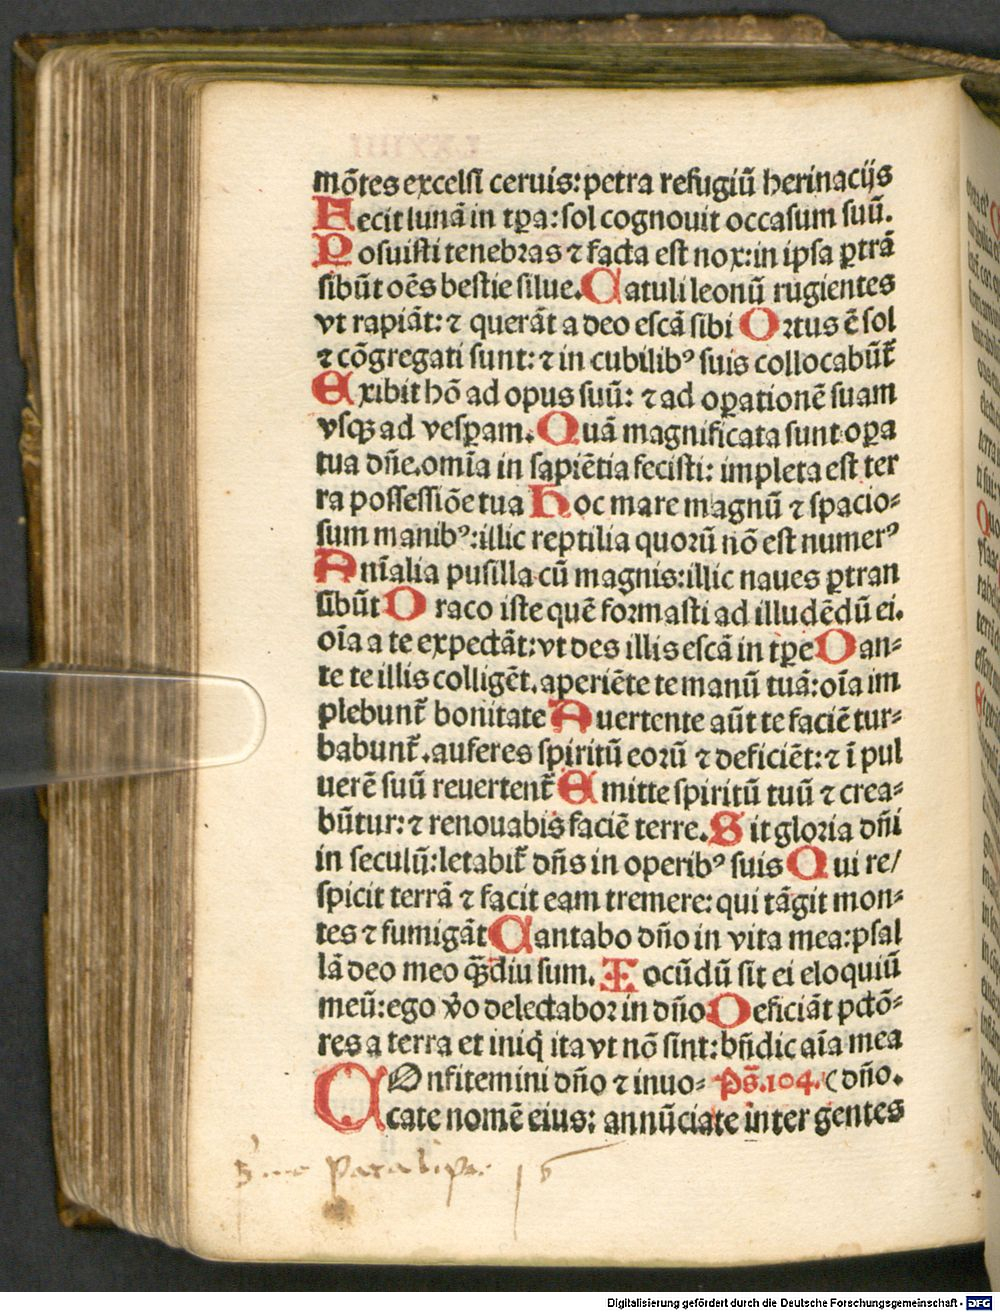 mōtes excelsi ceruis: petra refugiū herinacijs
Fecit lunā in tꝑa: sol cognouit occasum suū.
Posuisti tenebras ⁊ facta est nox: in ipsa ꝑtrā
sibūt oēs bestie silue. Catuli leonū rugientes
vt rapiāt: ⁊ querāt a deo escā sibi Ortus ē sol
⁊ cōgregati sunt: ⁊ in cubilibꝰ suis collocabūt᷑
Exibit hō ad opus suū: ⁊ ad oꝑationē suam
vsqꝫ ad vesꝑam. Quā magnificata sunt oꝑa
tua dñe. omīa in sapiētia fecisti: impleta est ter
ra possessiōe tua Hoc mare magnū ⁊ spacio⸗
sum manibꝰ: illic reptilia quorū nō est numerꝰ
Anīalia pusilla cū magnis: illic naues ꝑtran
sibūt Draco iste quē formasti ad illudēdū ei.
oīa a te expectāt: vt des illis escā in tꝑe Dan⸗
te te illis colligēt. aperiēte te manū tuā: oīa im
plebunt᷑ bonitate Auertente aūt te faciē tur⸗
babunt᷑. auferes spiritū eorū ⁊ deficiēt: ⁊ ī pul
uerē suū reuertent᷑ Emitte spiritū tuū ⁊ crea⸗
būtur: ⁊ renouabis faciē terre. Sit gloria dñi
in seculū: letabit᷑ dñs in operibꝰ suis Qui re/
spicit terrā ⁊ facit eam tremere: qui tāgit mon⸗
tes ⁊ fumigāt Cantabo dño in vita mea: psal
lā deo meo qꝫdiu sum. Iocūdū sit ei eloquiū
meū: ego v̄o delectabor in dño Deficiāt pctō⸗
res a terra et iniq̄ ita vt nō sint: bñdic aīa mea
COnfitemini dño ⁊ inuo⸗ Ps̄. 104. ( dño.
cate nomē eius: annūciate inter gentes
Paralip. 16
Digitalisierung gefördert durch die Deutsche Forschungsgemeinschaft - DFG